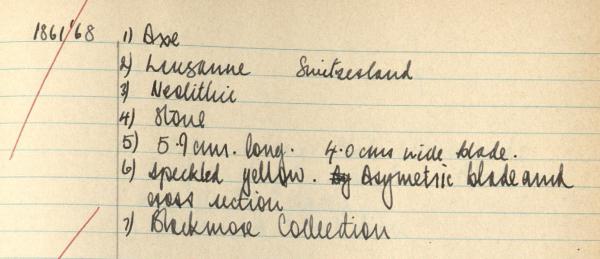 1861'68 1) Axe
2) Lausanne Switzerland
3) Neolithic
4) Stone
5) 5.9 cms. long. 4.0 cms wide blade.
6) speckled yellow. Asymetric blade and
cross section
7) Blackmore Collection